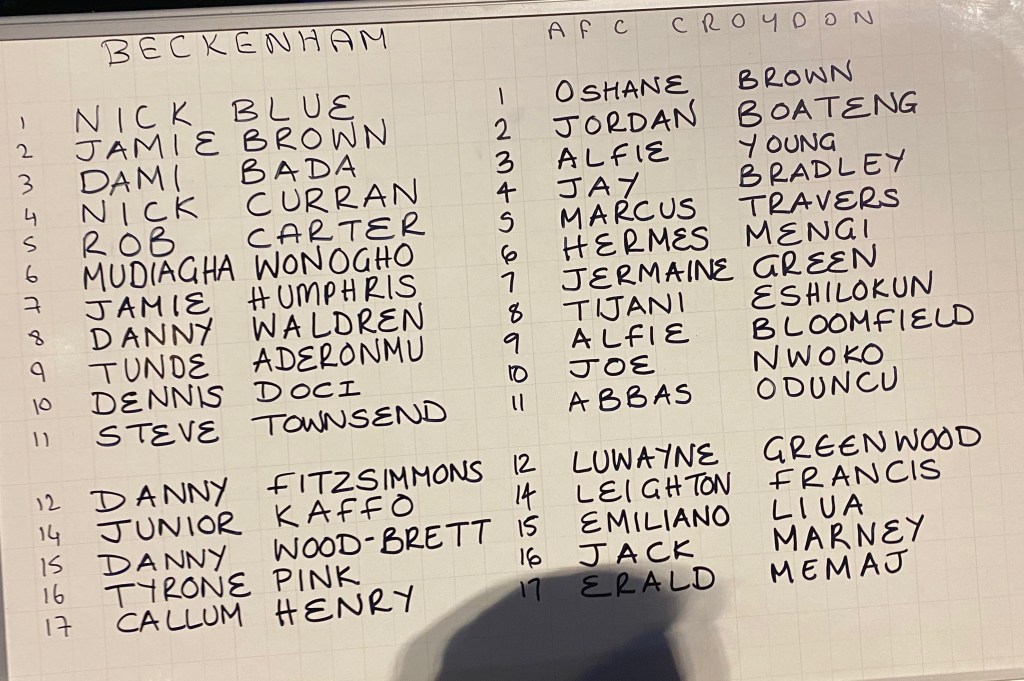 BECKENHAM
1 NICK BLUE
2 JAMIE BROWN
3 DAMI BADA
4 NICK CURRAN
5 ROB CARTER
6 MUDIAGHA WONOGHO
7 JAMIE HUMPHRIS
8 DANNY WALDREN
9 TUNDE ADERONMU
10 DENNIS DOCI
11 STEVE TOWNSEND
12 DANNY FITZSIMMONS
14 JUNIOR KAFFO
15 DANNY WOOD-BRETT
16 TYRONE PINK
17 CALLUM HENRY
AFC CROYDON
1 OSHANE BROWN
2 JORDAN BOATENG
3 ALFIE YOUNG
4 JAY BRADLEY
5 MARCUS TRAVERS
6 HERMES MENGI
7 JERMAINE GREEN
8 TIJANI ESHILOKUN
9 ALFIE BLOOMFIELD
10 JOE NWOKO
11 ABBAS ODUNCU
12 LUWAYNE GREENWOOD
14 LEIGHTON FRANCIS
15 EMILIANO LIUA
16 JACK MARNEY
17 ERALD MEMAJ